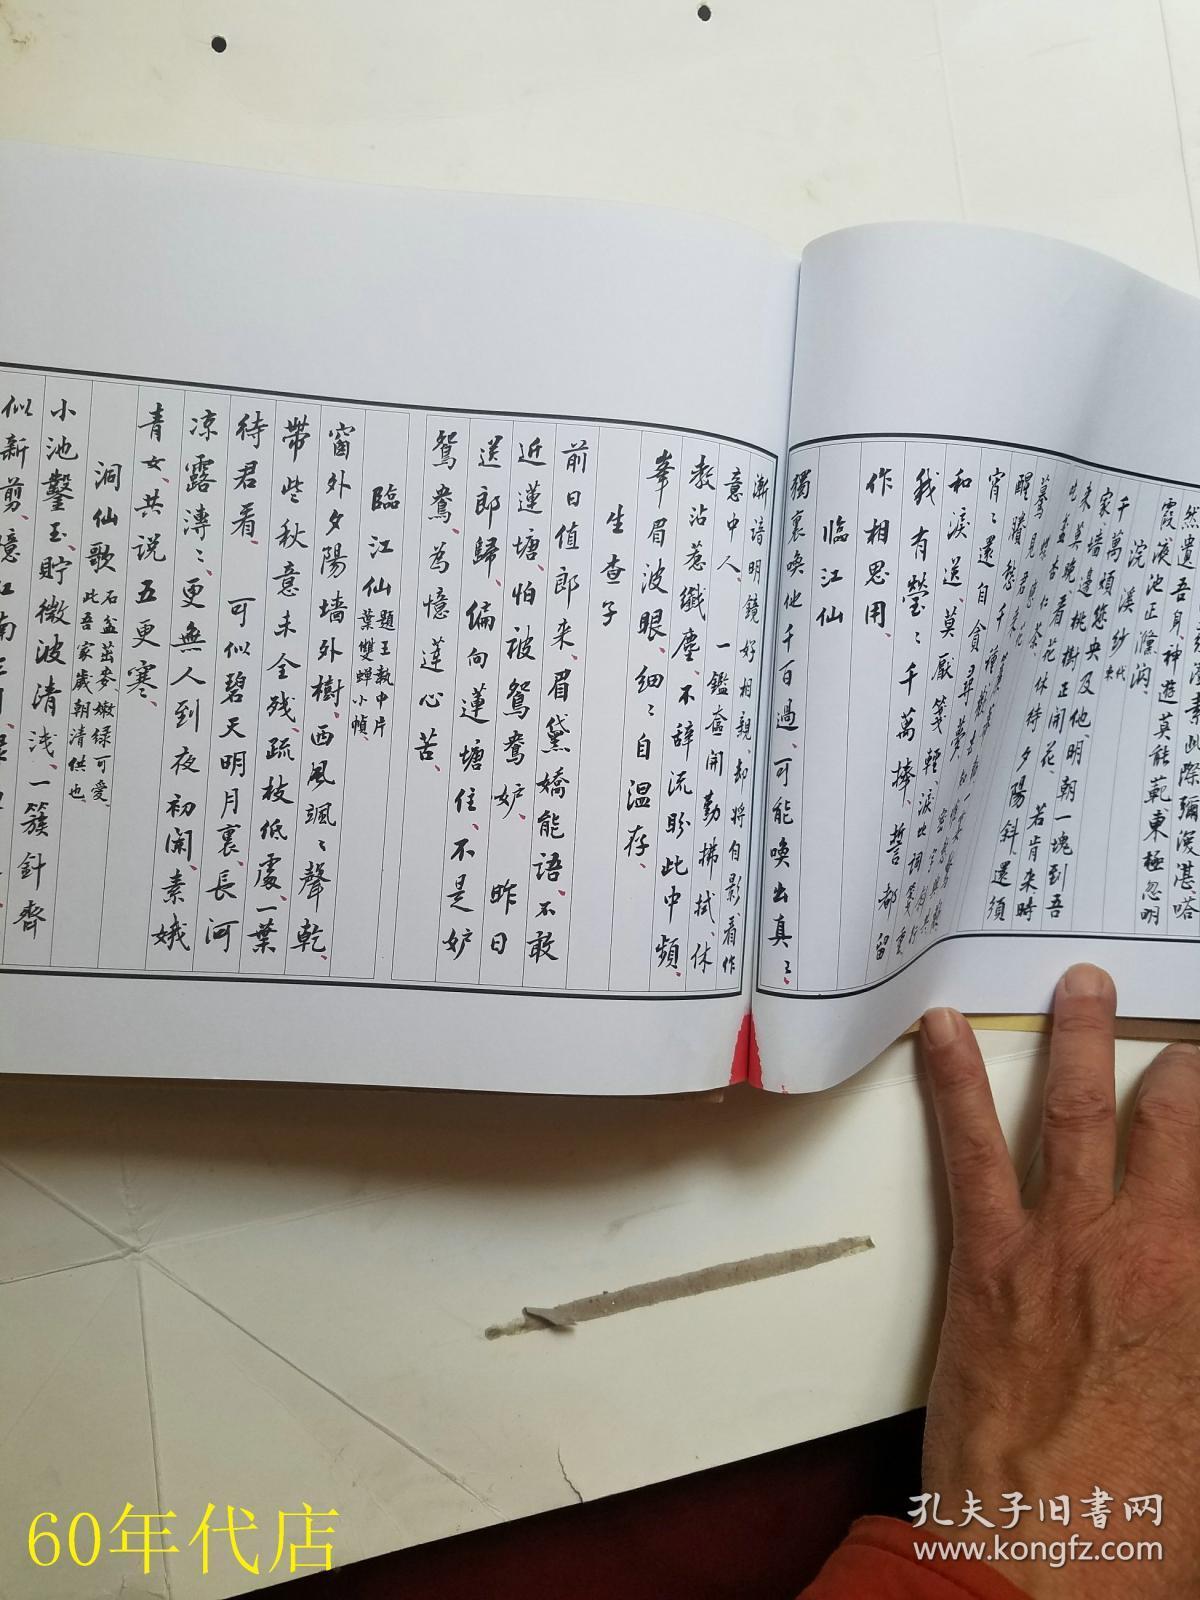 霞液池正瀠洄
千萬煩您央及他明朝一塊到吾
家墻邊桃樹正開花 若肯来時
来莫晚看花休待夕陽斜還須
和淚送莫厭箋輕
我有瑩〻千萬捧誓都留
作相思用
臨江仙
獨裏喚他千百過可能喚出真〻
漸諳明鏡好相親却將自影看作
意中人 一鑑奩開勤拂拭休
教沾惹纖塵不辭流盼此中頻
峯眉波眼細〻自温存
生查子
前日值郎来眉黛嬌能語不敢
近蓮塘怕被鴛鴦妒 昨日
送郎歸偏向蓮塘住不是妒
鴛鴦為憶蓮心苦
臨江仙 題王執中片葉雙蟬小幀
窗外夕陽墻外樹西風颯〻聲乾
帶些秋意未全残疏枝低處一葉
待君看 可似碧天明月裏長河
凉露漙〻更無人到夜初闌素娥
青女共説五更寒
洞仙歌 石盆茁麥嫩緑可愛此吾家歲朝清供也
小池鑿玉貯微波清浅一簇針齊
似新剪憶江南
60年代店
孔夫子旧书网
www.kongfz.com